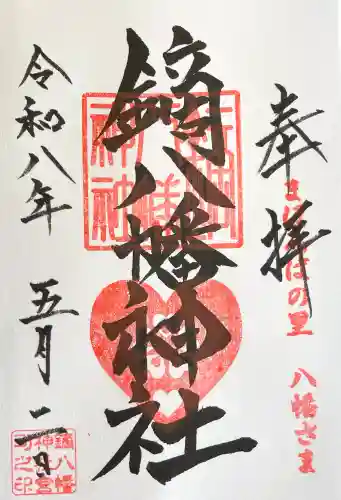 奉拝
まほろばの里 八幡さま
鏑八幡神社
令和八年 五月一日
鏑八幡
神社宮
司之印